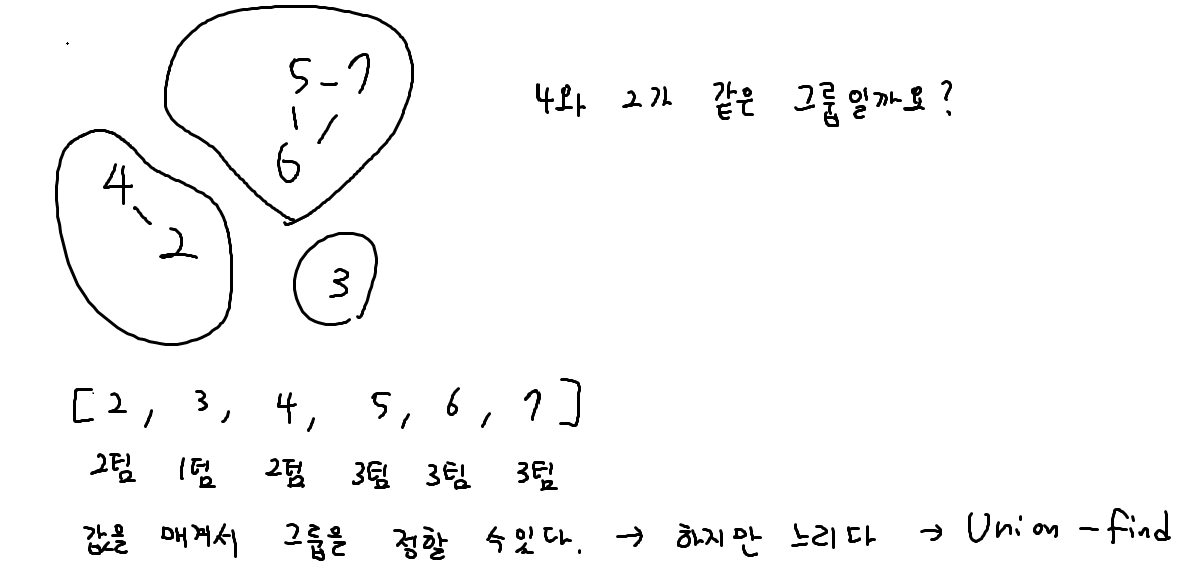 5 - 7
6
4
2
3
4와 2가 같은 그룹일까요?
[2, 3, 4, 5, 6, 7]
2팀 1팀 2팀 3팀 3팀 3팀
값을 매겨서 그룹을 정할 수있다. → 하지만 느리다 → Union - find